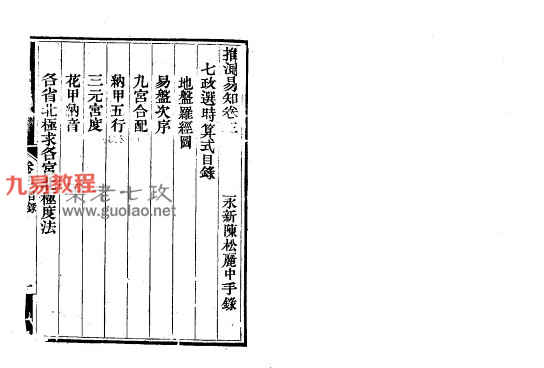 推測易知卷三
永新陳松麗中手錄
七政選時算式目錄
地盤羅經圖
易盤次序
九宮合配
納甲五行
三元宮度
花甲納音
各省北極求各宮極度法
目錄
九易教程
老七政
www.guolao.net